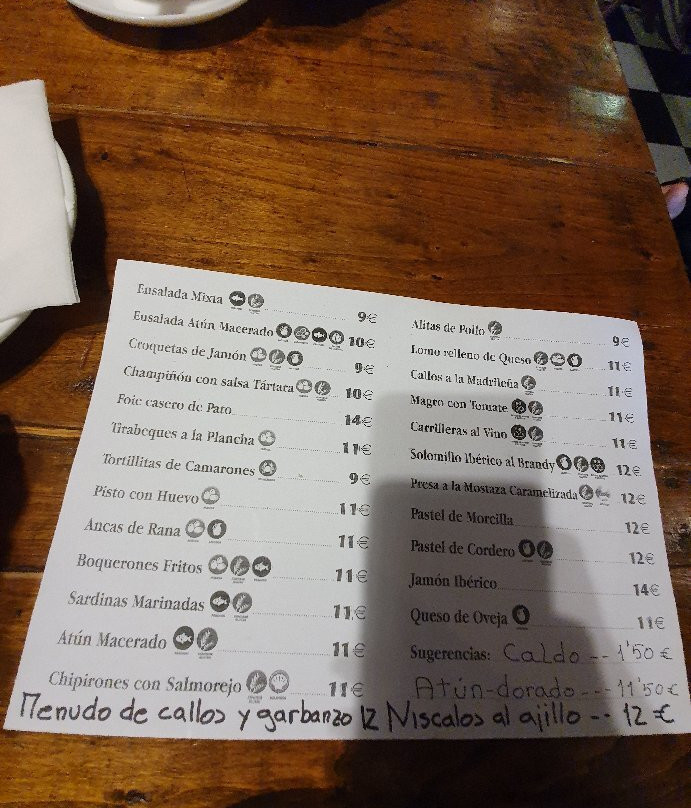 Ensalada Mixta 9€
Ensalada Atún Macerado 10€
Croquetas de Jamón 9€
Champiñón con salsa Tártara 10€
Foie casero de Pato 14€
Tirabeques a la Plancha 11€
Tortillitas de Camarones 9€
Pisto con Huevo 11€
Ancas de Rana 11€
Boquerones Fritos 11€
Sardinas Marinadas 11€
Atún Macerado 11€
Chipirones con Salmorejo 11€
Menudo de callos y garbanzo 12
Alitas de Pollo 9€
Lomo relleno de Queso 11€
Callos a la Madrileña 11€
Magro con Tomate 11€
Carrilleras al Vino 11€
Solomillo Ibérico al Brandy 12€
Presa a la Mostaza Caramelizada 12€
Pastel de Morcilla 12€
Pastel de Cordero 12€
Jamón Ibérico 14€
Queso de Oveja 11€
Sugerencias: Caldo -- 1'50 €
Atún-dorado --- 11'50€
Niscalos al ajillo -- 12 €